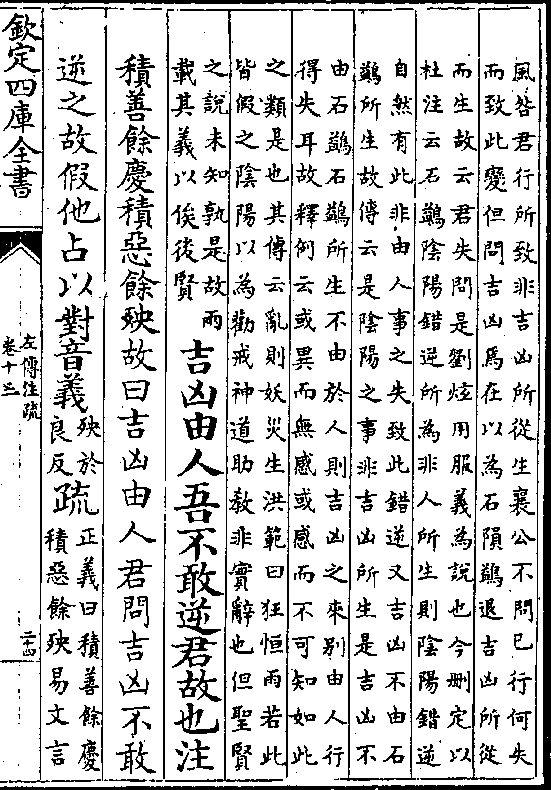 風咎君行所致非吉凶所從生襄公不問已行何失
而致此變但問吉凶焉在以為石隕鷁退吉凶所從
而生故云君失問是劉炫用服義為說也今刪定以
杜注云石鷁陰陽錯逆所為非人所生則陰陽錯逆
自然有此非由人事之失致此錯逆又吉凶不由石
鷁所生故傳云是陰陽之事非吉凶所生是吉凶不
由石鷁石鷁所生不由於人則吉凶之來別由人行
得失耳故釋例云或異而無感或感而不可知如此
之類是也其傳云亂則妖災生洪範曰狂恒雨若此
皆假之陰陽以為勸戒神道助教非實辭也但聖賢
之說未知孰是故兩
載其義以俟後賢
吉凶由人吾不敢逆君故也注
積善餘慶積惡餘殃故曰吉凶由人君問吉凶不敢
逆之故假他占以對音義
殃於
良反
疏
正義曰積善餘慶
積惡餘殃易文言
欽定四庫全書
左傳注疏
卷十三
二十四